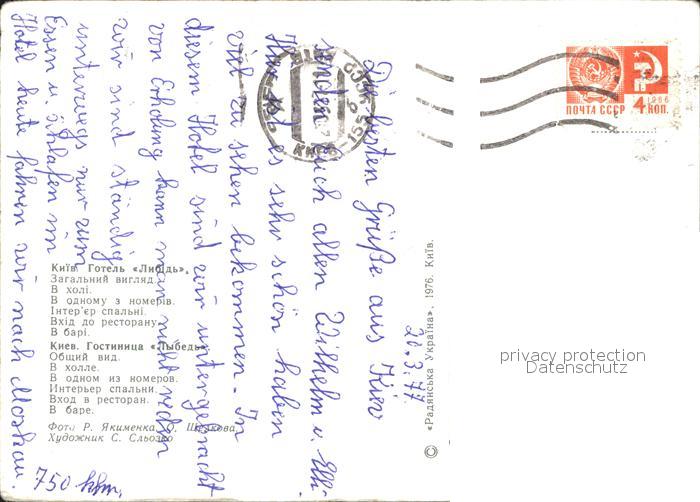 20.3.77.
Die besten Grüße aus Kiew
senden Euch allen Wilhelm u. Elli.
Hier ist es sehr schön haben
viel zu sehen bekommen. In
diesem Hotel sind wir untergebracht
von Erholung kann man nicht reden
wir sind ständig
unterwegs nur zum
Essen u. schlafen im
Hotel heute fahren wir nach Moskau.
750 khm.
Київ. Готель «Либідь».
Загальний вигляд.
В холі.
В одному з номерів.
Інтер'єр спальні.
Вхід до ресторану.
В барі.
Киев. Гостиница «Лыбедь».
Общий вид.
В холле.
В одном из номеров.
Интерьер спальни.
Вход в ресторан.
В баре.
Фото Р. Якименка, О.
Художник С. Сльозко
© «Радянська Україна», 1976. Київ.
1966
ПОЧТА СССР 4 КОП.
privacy protection
Datenschutz